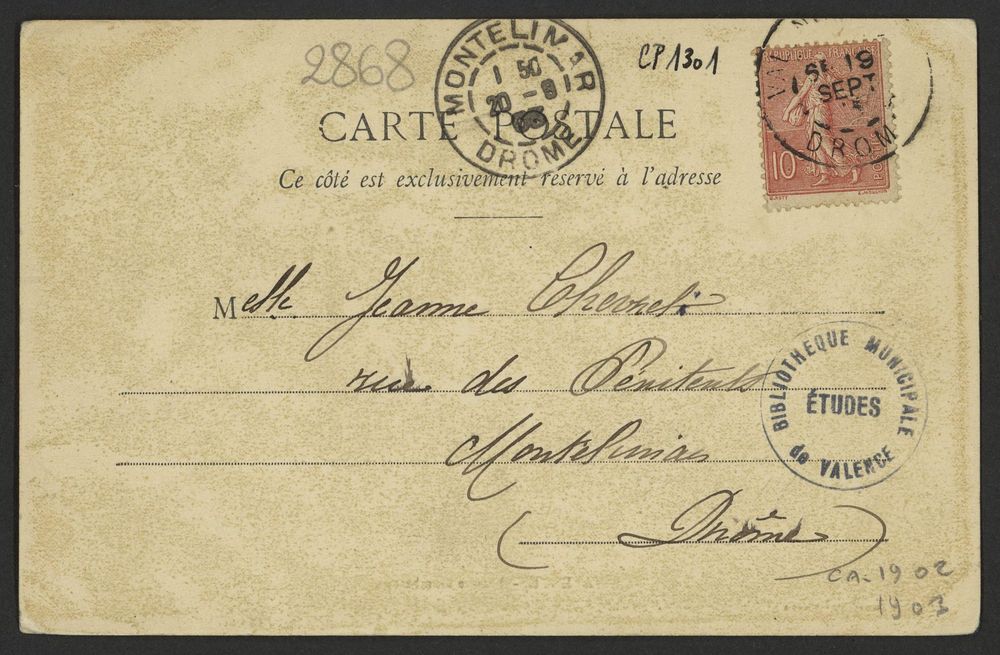 2868
MONTELIMAR
1 50
20 - 9
DROME
CP1301
RÉPUBLIQUE FRANÇAISE
19
SEPT
DROM
10
CARTE POSTALE
Ce côté est exclusivement réservé à l'adresse
Melle Jeanne
rue des Pénitents
Montelimar
(Drôme)
BIBLIOTHEQUE MUNICIPALE
ÉTUDES
de VALENCE
CA. 1902
1903